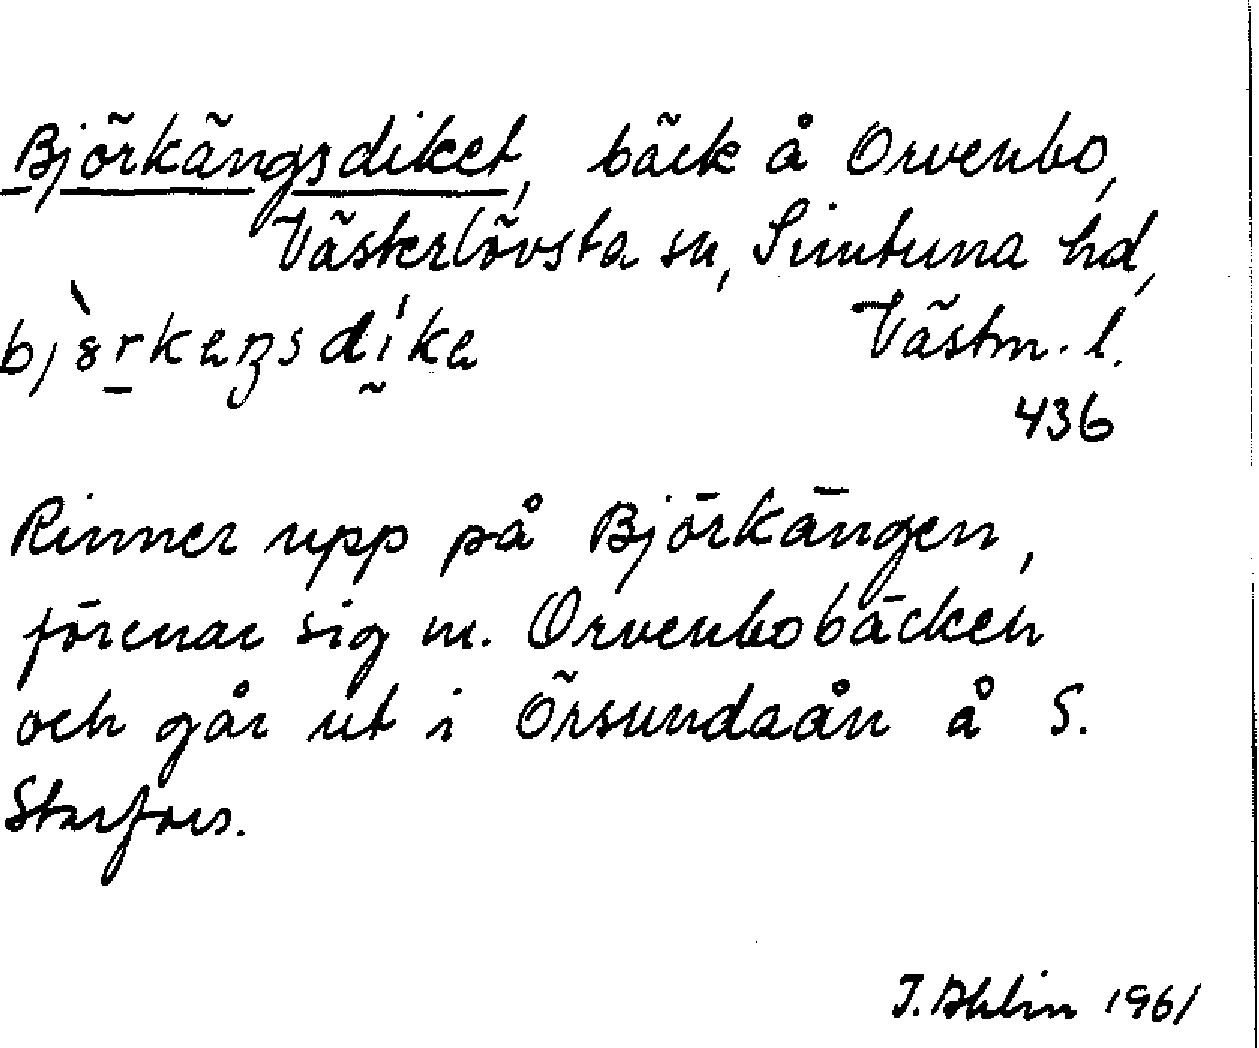 Björkängsdiket, bäck å Orvenbo,
Västerlövsta sn, Simtuna hd,
Västm. l.
436
Rinner upp på Björkängen,
förenar sig m. Orvenbobäcken
och går ut i Örsundaån å S.
Starfors.
J. Ahlin 1961